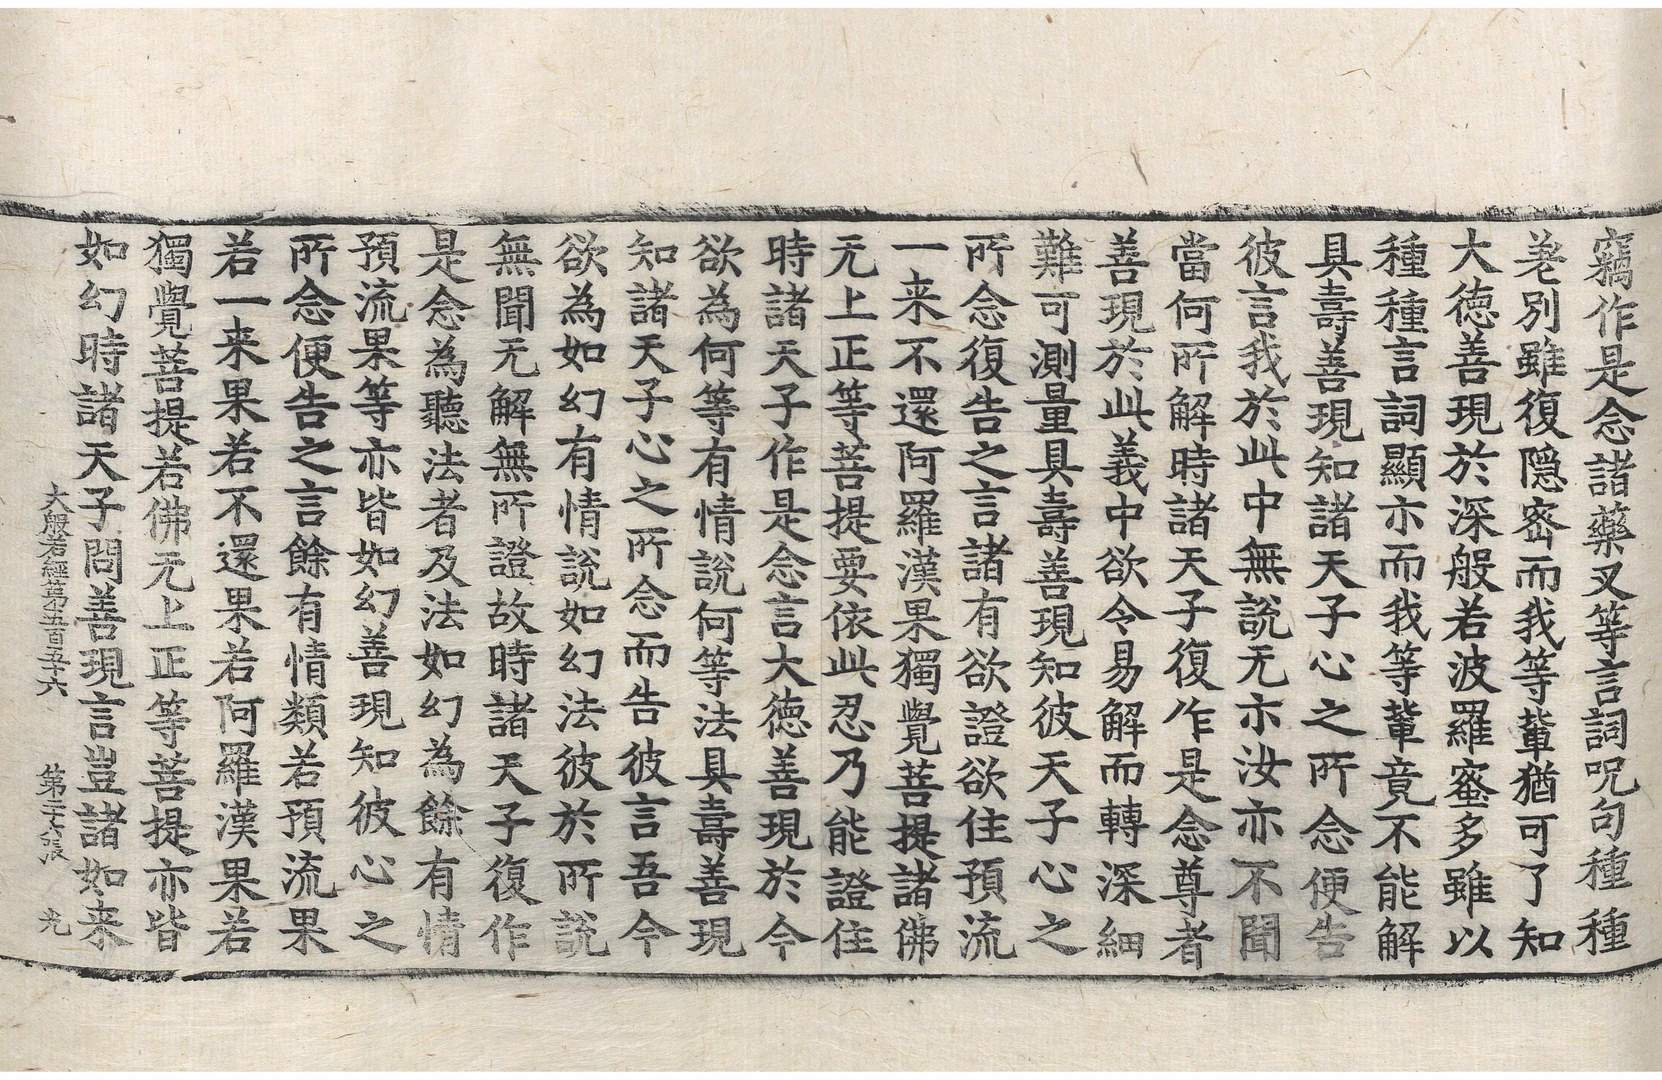 竊作是念諸藥叉等言詞呪句種種
差別雖復隱密而我等輩猶可了知
大德善現於深般若波羅蜜多雖以
種種言詞顯示而我等輩竟不能解
具壽善現知諸天子心之所念便告
彼言我於此中無說无示汝亦不聞
當何所解時諸天子復作是念尊者
善現於此義中欲令易解而轉深細
難可測量具壽善現知彼天子心之
所念復告之言諸有欲證欲住預流
一来不還阿羅漢果獨覺菩提諸佛
无上正等菩提要依此忍乃能證住
時諸天子作是念言大德善現於今
欲為何等有情說何等法具壽善現
知諸天子心之所念而告彼言吾今
欲為如幻有情說如幻法彼於所說
無聞无解無所證故時諸天子復作
是念為聽法者及法如幻為餘有情
預流果等亦皆如幻善現知彼心之
所念便告之言餘有情類若預流果
若一来果若不還果若阿羅漢果若
獨覺菩提若佛无上正等菩提亦皆
如幻時諸天子問善現言豈諸如来
大般若經第五百五十六 第二十八張 光